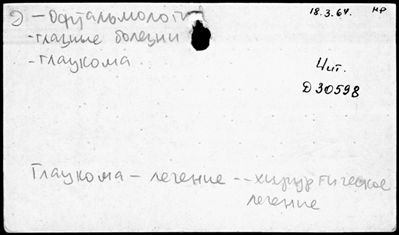 Э - Офтальмология
- глазные болезни
- глаукома
18.3.64. НР
Чит.
D 30598
Глаукома - лечение -- хирургическое
лечение